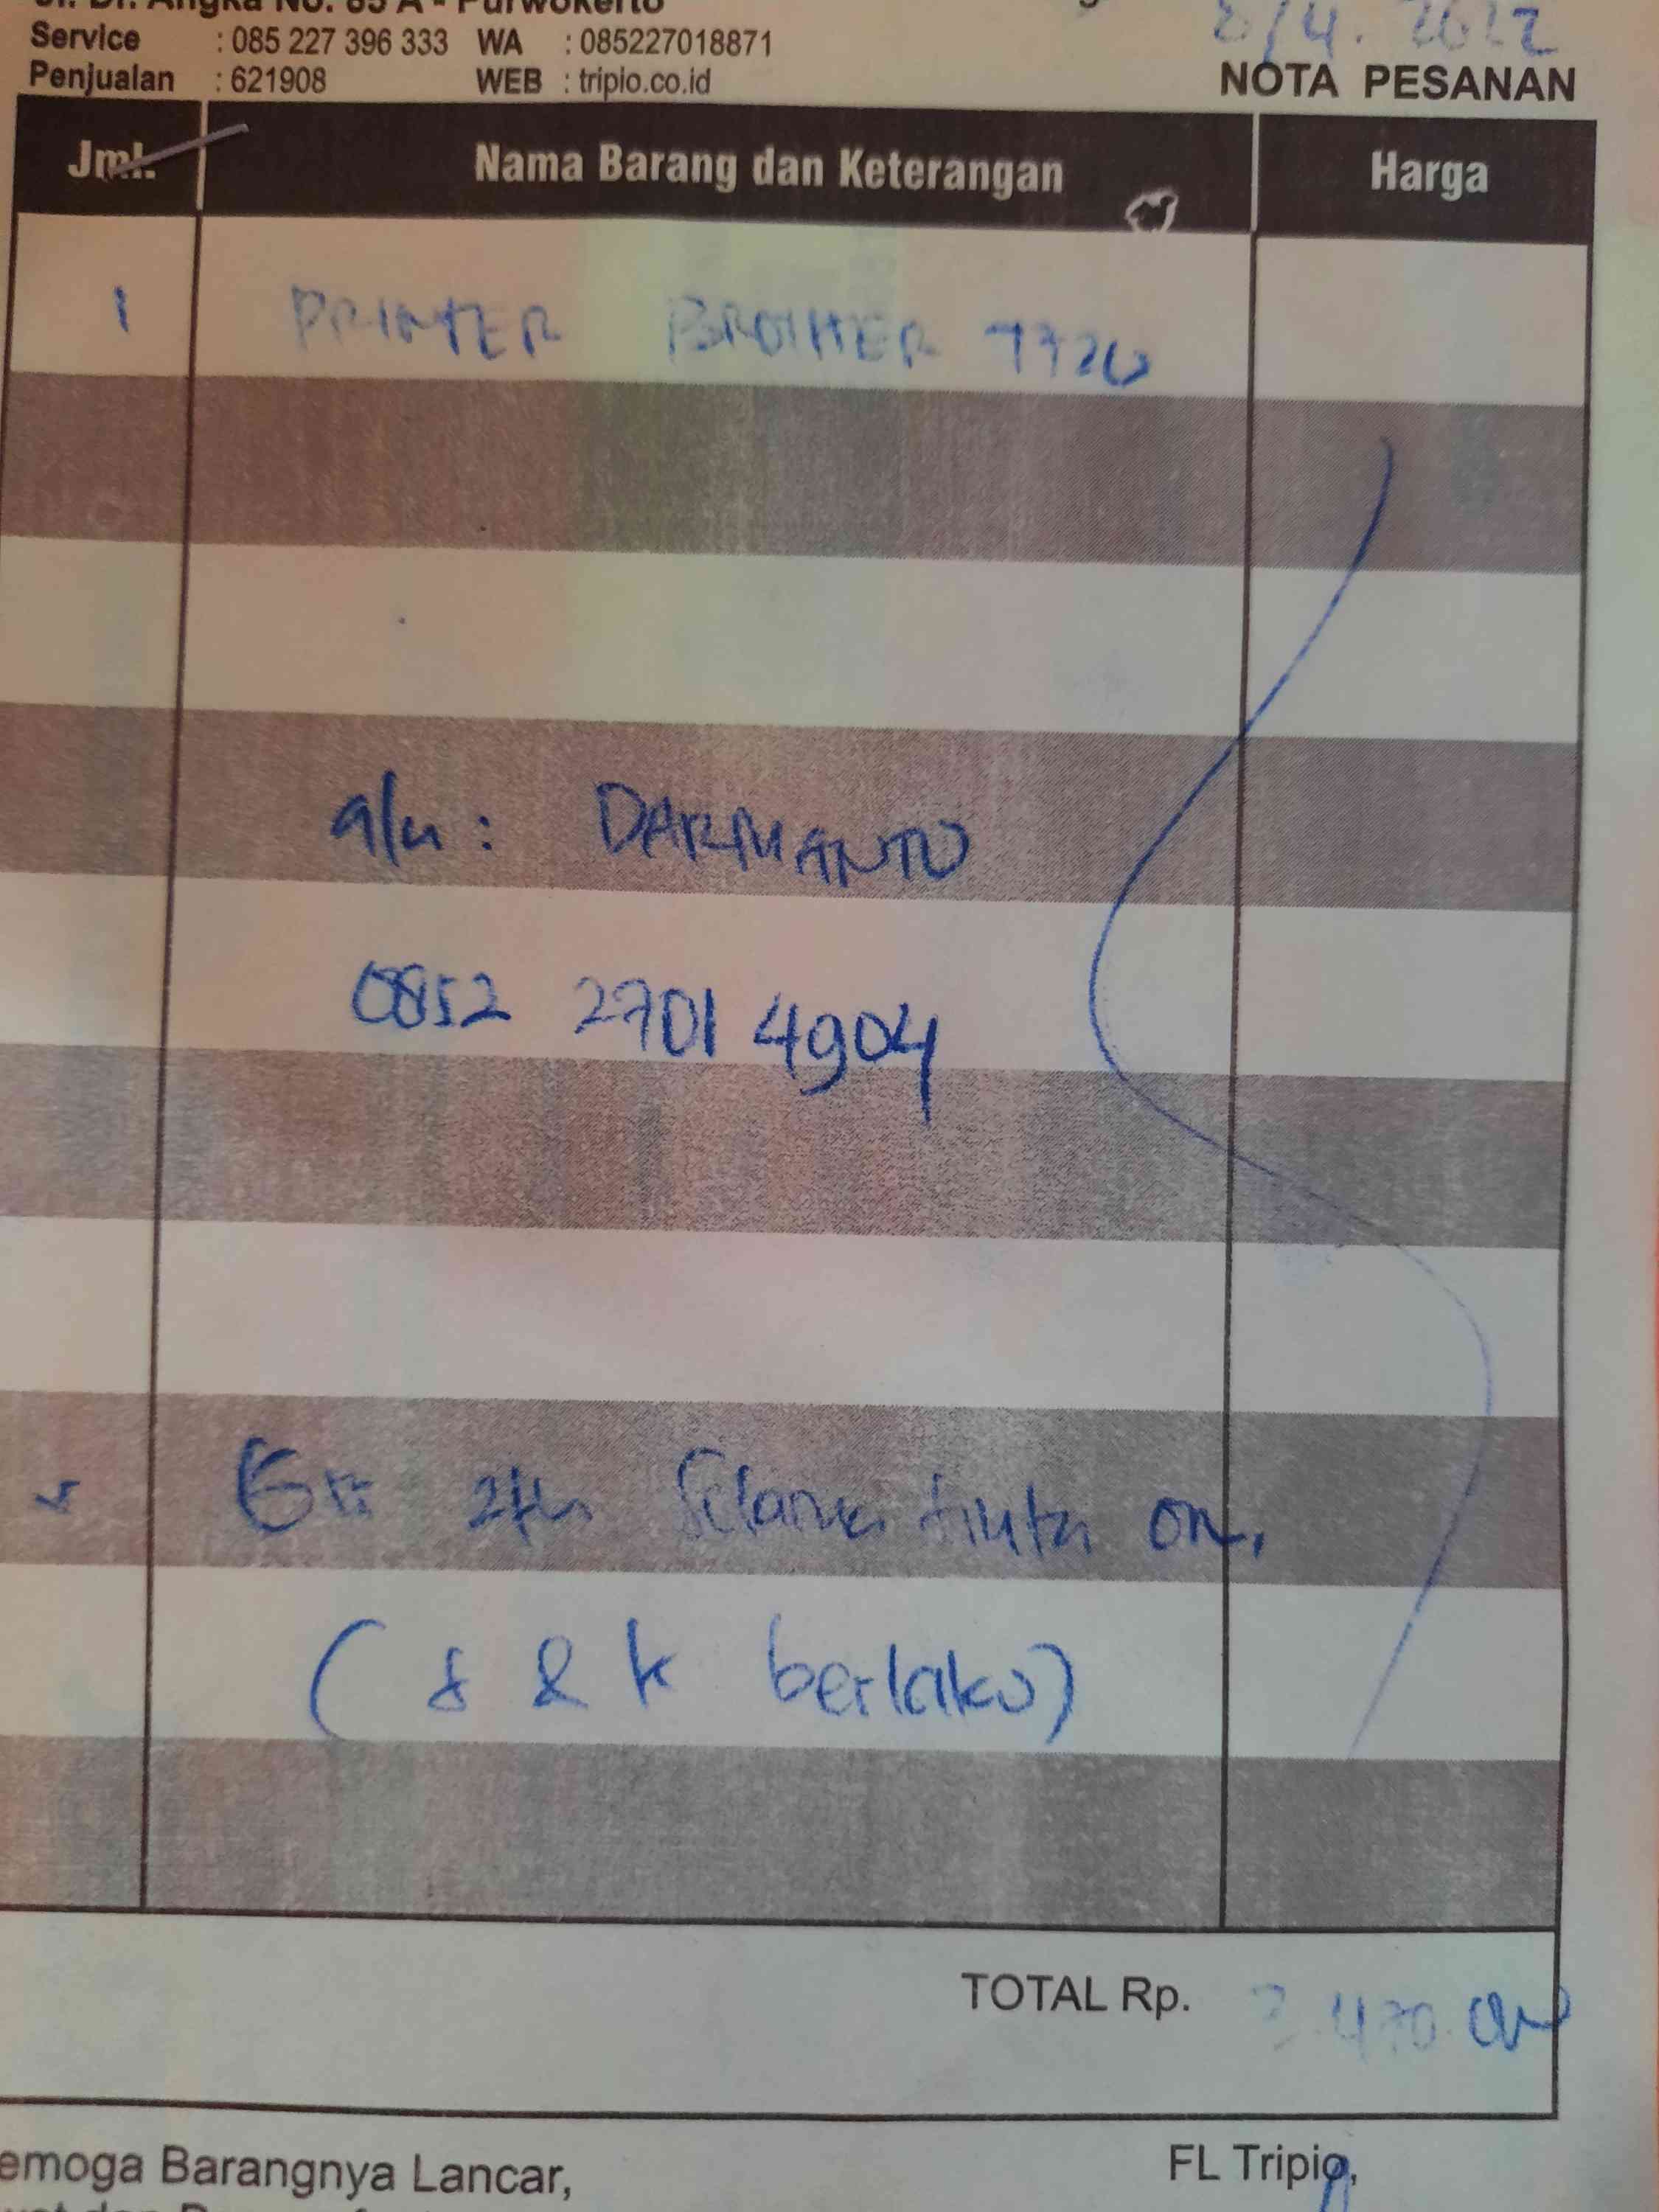 Jl. Dr. Angka No. 85 A - Purwokerto
Service : 085 227 396 333 WA : 085227018871
Penjualan : 621908 WEB : tripio.co.id
8/4. 2022
NOTA PESANAN
Jml. Nama Barang dan Keterangan Harga
1 PRINTER BROTHER T720
a/n : DARMANTO
0852 2701 4904
2th Selama tinta ori.
(s & k berlaku)
TOTAL Rp. 3.470.000
emoga Barangnya Lancar,
FL Tripio,